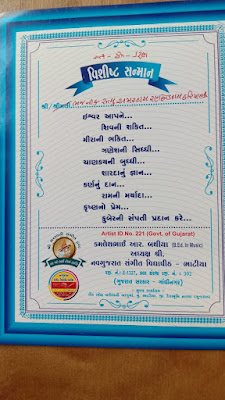 વિશીષ્ટ સન્માન
શ્રી/શ્રીમતી
ઈશ્વર આપને...
શિવની શકિત...
મીરાંની ભકિત...
ગણેશની સિધ્ધી...
ચાણકયની બુધ્ધી...
શારદાનું જ્ઞાન...
કર્ણનું દાન...
રામની મર્યાદા...
કૃષ્ણનો પ્રેમ...
કુબેરની સંપતી પ્રદાન કરે...
Artist ID No. 221 (Govt. of Gujarat)
કમલેશભાઈ આર. બથીયા (B.Ed. In Music)
અધ્યક્ષ શ્રી.
નવગુજરાત સંગીત વિદ્યાપીઠ - ભાટીયા
(ગુજરાત સરકાર - ગાંધીનગર)